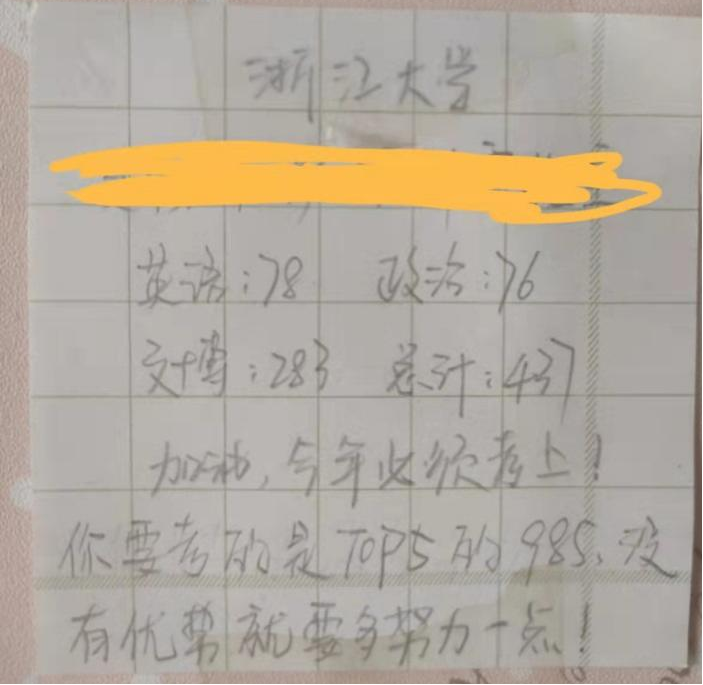 浙江大学
英语:78 政治:76
文博:283 总计:437
加油,今年必须考上!
你要考的是TOP5的985,没
有优势就要多努力一点!